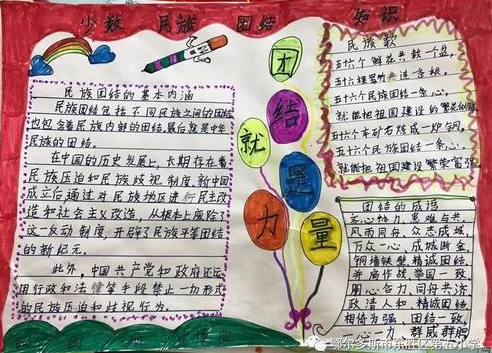 少数 民族 团结 知识
民族团结的基本内涵
民族团结包括不同民族之间的团结
也包含着民族内部的团结,最后就是中华
民族的团结。
在中国的历史发展上,长期存在着
民族压迫和民族歧视制度,新中国
成立后通过对民族地区进行民主改
造和社会主义改造,从根本上废除了
这一反动制度,开辟了民族平等团结
的新纪元。
此外,中国共产党和政府还运
用行政和法律等手段禁止一切形式
的民族压迫和歧视行为。
团
结
就
是
力
量
民族歌
五十六个鲜花共
五十六
五十六个民族团结一条心,
就能把祖国建设的繁花似锦
五十六
五十六个民族团结一条心,
就能把祖国建设繁荣富强
团结的成语
齐心协力,患难与共,
风雨同舟,众志成城,
万众一心,成城断金
铜墙铁壁,精诚团结,
并肩作战,举国一致
同心合力,同舟共济
政清人和,精诚团结,
相倚为强,团结一致,
心一力,群威群胆
鄂尔多斯市东胜区第五小学